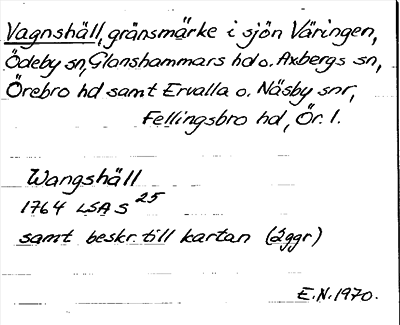 Vagnshäll, gränsmärke i sjön Väringen,
Ödeby sn, Glanshammars hd o. Axbergs sn,
Örebro hd samt Ervalla o. Näsby snr,
Fellingsbro hd, Ör. l.
Wangshäll
1764 LSA S 25
samt beskr. till kartan (2ggr)
E.N. 1970.